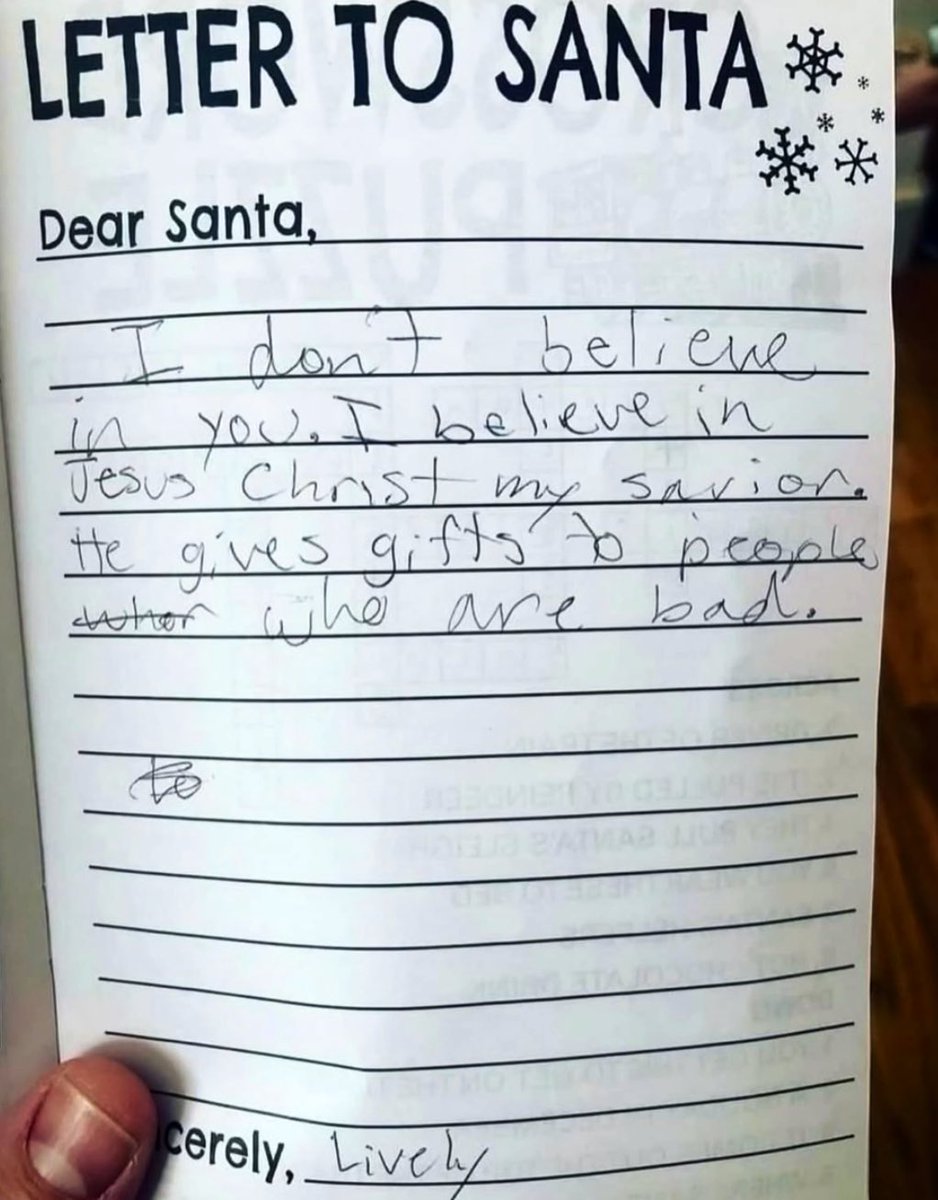 LETTER TO SANTA
Dear Santa,
I don't believe
in you. I believe in
Jesus Christ my savior.
He gives gifts to people
who are bad.
cerely, Lively